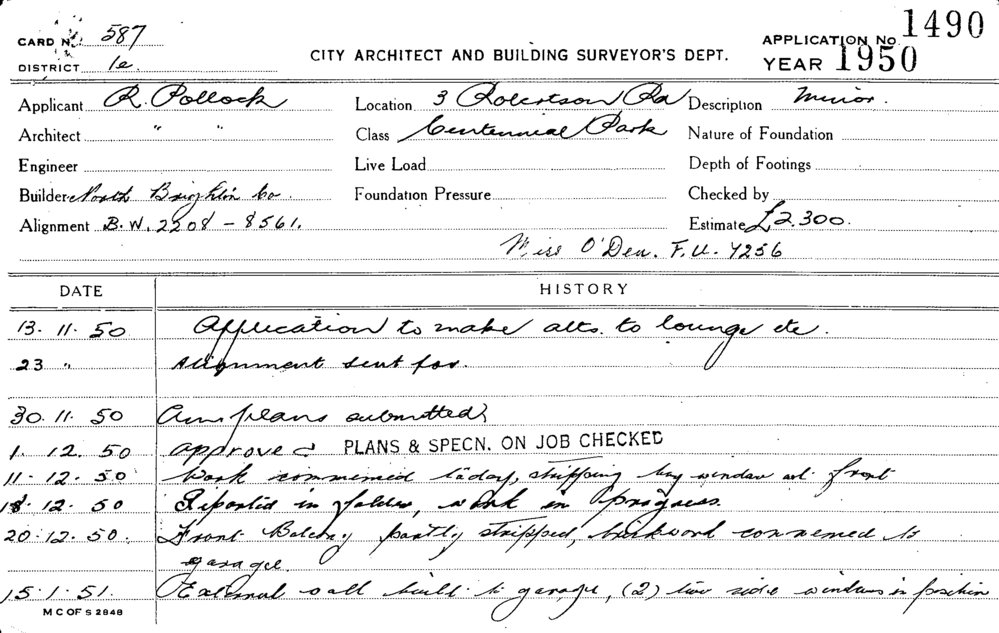 CARD No. 587
DISTRICT 1e.
CITY ARCHITECT AND BUILDING SURVEYOR'S DEPT.
APPLICATION No. 1490
YEAR 1950
Applicant R. Pollock Location 3 Robertson Rd Description Minor.
Architect " " Class Centennial Park Nature of Foundation
Engineer Live Load Depth of Footings
Builder North Brighton Co. Foundation Pressure Checked by
Alignment B.W. 2208 - 8561. Estimate £2.300.
Miss O'Dea. F.U. 7256
DATE HISTORY
13. 11. 50 Application to make alts. to lounge etc.
23 " Alignment sent for.
30. 11. 50 Am plans submitted
1. 12. 50 approved PLANS & SPECN. ON JOB CHECKED
11. 12. 50 Work commenced today, stripping bay window at front
18. 12. 50 Reported in folder, work in progress.
20. 12. 50. Front Balcony partly stripped, brickwork commenced to
garage.
15. 1. 51. External wall built to garage, (2) two side windows in position
M C OF S 2848